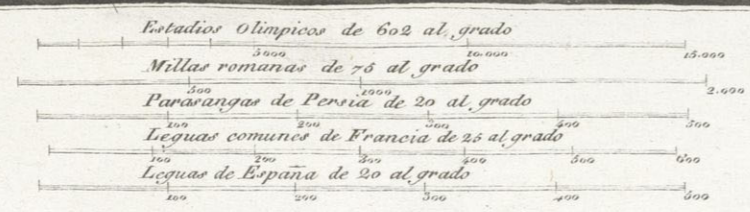 Estadios Olimpicos de 602 al grado
5000 10.000 15.000
Millas romanas de 75 al grado
500 1000 2.000
Parasangas de Persia de 20 al grado
100 200 300 400 500
Leguas comunes de Francia de 25 al grado
100 200 300 400 500 600
Leguas de España de 20 al grado
100 200 300 400 500